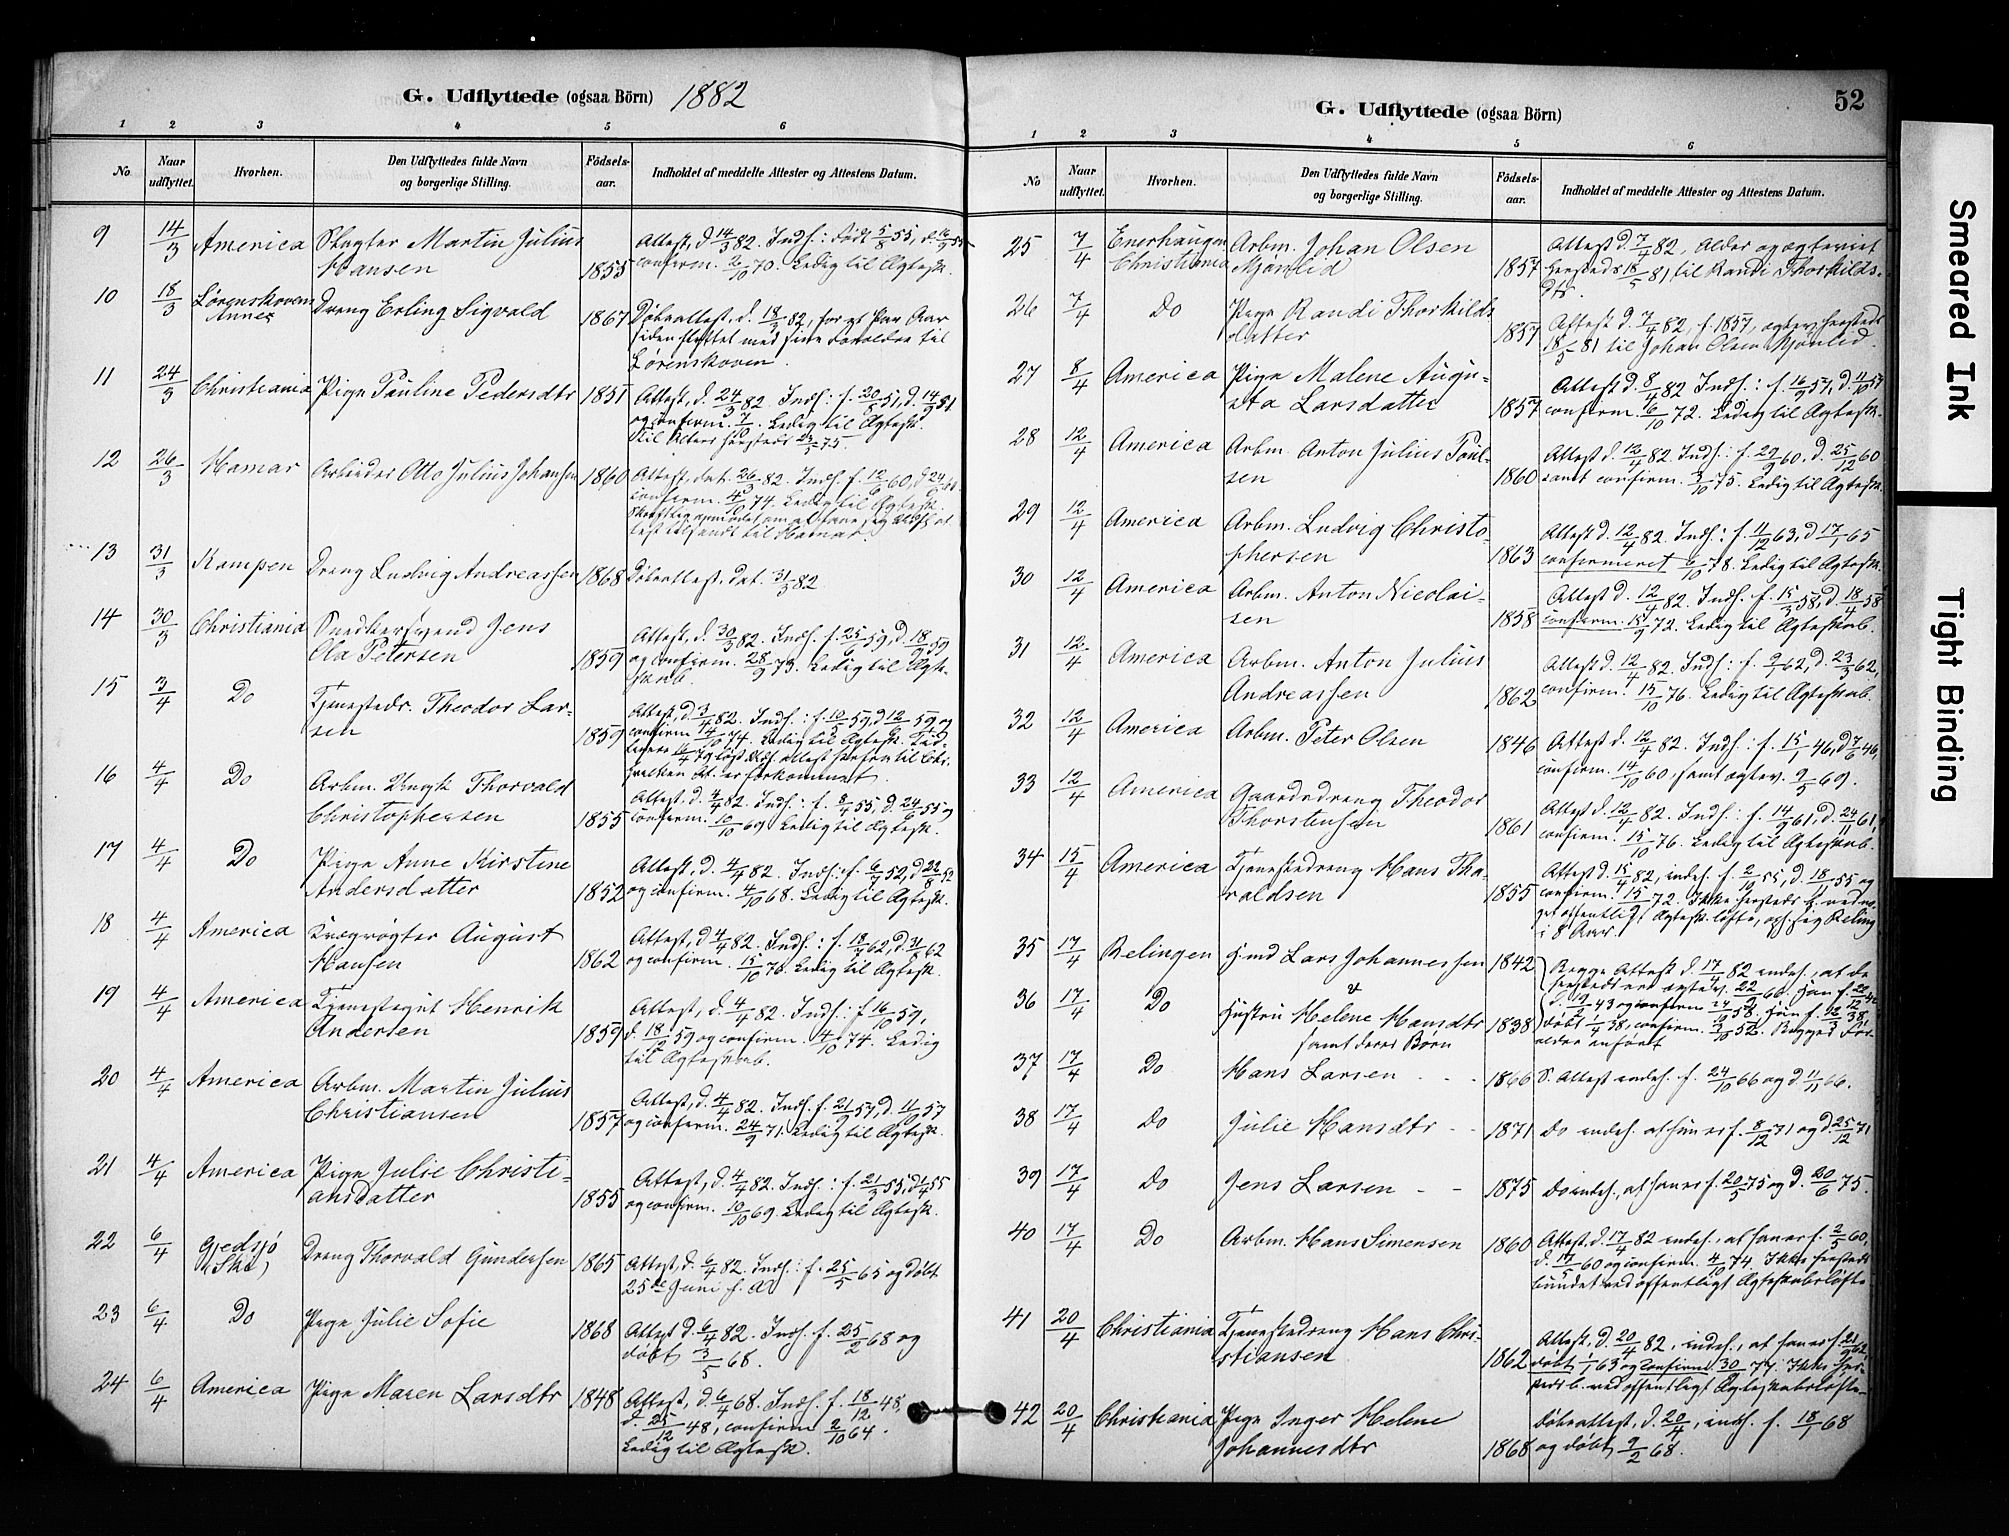 G. Udflyttede (ogsaa Börn) 1882
1 2 3 4 5 6
No
Naar udflyttet.
Hvorhen.
Den Udflyttedes fulde Navn og borgerlige Stilling.
Födsels-aar.
Indholdet af meddelte Attester og Attestens Datum.
9 14/3 America Slagter Martin Julius
Hansen 1855 Attest, d. 14/3 82. Indh.: født 5/8 55,
confirm. 2/10 70. Ledig til Ægtesk.
10 18/3 Lørenskovens
Annex Dreng Erling Sigvald 1867 Døbeattest, d. 18/3 82, for et Par Aar
siden flyttet med sine Forældre til
Lørenskoven.
11 24/3 Christiania Pige Pauline Pedersdtr 1851 Attest, d. 24/3 82. Indh.: f. 20/8 51, d. 14/9 51
og confirm. Ledig til Ægtesk.
12 26/3 Hamar Arbeider Otto Julius Johansen 1860 Attest, dat. 26/3 82. Indh. f. 12/6 60,
confirm. 4/10 74. Ledig til Ægtesk.
til Hamar.
13 31/3 Kampen Dreng Ludvig Andreassen 1868 Døbeattest, dat. 31/3 82
14 30/3 Christiania Snedkersvend Jens
Ola Petersen 1859 Attest, d. 30/3 82. Indh. f. 25/6 59, d. 18/9 59
og confirm. 28/9 73. Ledig til Ægte-
skab.
15 3/4 Do Tjenestedr. Theodor Lar-
sen 1859 Attest, d. 3/4 82. Indh.: f. 10/10 59, d. 12/ 59 og
confirm. 4/10 74. Ledig til Ægtesk. Tid-
16 4/4 Do Arbm. Thorvald
Christophersen 1855 Attest, d. 4/4 82. Indh.: f. 8/4 55, d. 24/6 55 og
confirm. 10/10 69 Ledig til Ægtesk.
17 4/4 Do Pige Anne Kirstine
Andersdatter 1852 Attest, d. 4/4 82. Indh.: f. 6/7 52, d. 22/8 52
og confirm. 4/10 68. Ledig til Ægtesk.
18 4/4 America Kvægrøgter August
Hansen 1862 Attest, d. 4/4 82. Indh.: f. 18/7 62, d. 31/8 62
og confirm. 15/10 76. Ledig til Ægtesk.
19 4/4 America Tjenestegut Henrik
Andersen 1859 Attest, d. 4/4 82. Indh.: f. 16/10 59,
d. 18/12 59 og confirm. 4/10 74. Ledig
til Ægteskab.
20 4/4 America Arbm. Martin Julius
Christiansen 1857 Attest, d. 4/4 82. Indh. f. 21/9 57, d. 11/ 57
og confirm. 24/9 71. Ledig til Ægtesk.
21 4/4 America Pige Julie Christi-
ansdatter 1855 Attest, d. 4/4 82. Indh.: f. 21/3 55, d. 55
og confirm. 10/10 69. Ledig til Ægtesk.
22 6/4 Gjedsjø
(Ski) Dreng Thorvald Gundersen 1865 Attest, d. 6/4 82. Indh.: f. 25/5 65 og døbt
25de Juni s. A
23 6/4 Do Pige Julie Sofie 1868 Attest d. 6/4 82. Indh. f. 25/2 68 og
døbt 3/5 68.
24 6/4 America Pige Maren Larsdtr 1848 Attest, d. 6/4 68. Indh. f. 18/12 48,
d. 25/12 48, confirm 2/10 64.
Ledig til Ægtesk.
G. Udflyttede (ogsaa Börn)
52
1 2 3 4 5 6
No
Naar udflyttet.
Hvorhen.
Den Udflyttedes fulde Navn og borgerlige Stilling.
Födsels-aar.
Indholdet af meddelte Attester og Attestens Datum.
25 7/4 Enerhaugen
Christiania Arbm. Johan Olsen
Mjønlid 1857 Attest d. 7/4 82, Alder og ægteviet
hersteds 18/5 81, til Randi Thorkilds-
dtr.
26 7/4 Do Pige Randi Thorkilds
datter 1857 Attest d. 7/4 82, f. 1857, ægtev. hersteds
18/5 81 til Johan Olsen Mjønlid.
27 8/4 America Pige Malene Augu-
sta Larsdatter 1857 Attest d. 8/4 82 Indh.: f. 16/9 57, d. 11/10 57
confirm. 6/10 72. Ledig til Ægtesk.
28 12/4 America Arbm. Anton Julius Poul-
sen 1860 Attest d. 12/4 82. Indh.: f. 29/9 60, d. 25/12 60
samt confirm. 3/10 75. Ledig til Ægtesk.
29 12/4 America Arbm. Ludvig Christo-
phersen 1863 Attest d. 12/4 82. Indh.: f. 11/12 63, d. 17/1 65
confirmeret 6/10 78. Ledig til Ægtesk.
30 12/4 America Arbm. Anton Nicolai-
sen 1858 Attest d. 12/4 82. Indh. f. 15/3 58, d. 18/4 58
confirm. 15/9 72. Ledig til Ægteskab.
31 12/4 America Arbm. Anton Julius
Andreassen 1862 Attest d. 12/4 82. Indh: f. 9/1 62, d. 23/3 62,
confirm. 15/10 76. Ledig til Ægteskab.
32 12/4 America Arbm. Peter Olsen 1846 Attest d. 12/4 82. Indh.: f. 15/1 46, d. 7/6 46,
confirm. 14/10 60, samt ægtev. 9/5 69.
33 12/4 America Gaardsdreng Theodor
Thorstensen 1861 Attest d. 12/4 82. Indh.: f. 14/9 61, d. 24/11 61,
confirm. 15/10 76. Ledig til Ægteskab.
34 15/4 America Tjenestedreng Hans Tho-
raldsen 1855 Attest d. 15/4 82, indeh. f. 2/10 55, d. 18/11 55 og
confirm. 15/9 72. Ikke hersteds b. ved no-
get offentligt Ægtesk. løfte, oph. sig Reling
i 8 Aar.
35 17/4 Relingen Gmd Lars Johannessen 1842 Begge Attest d. 17/4 82 indeh. at de
&
36 17/4 Do Hustru Helene Hansdtr
samt deres Børn 1838
37 17/4 Do Hans Larsen - - 1866 S. Attest indeh. f. 24/10 66 og d. 11/11 66.
38 17/4 Do Julie Hansdtr - - 1871 Do indeh. at hun er f. 8/12 71 og d. 25/12 71
39 17/4 Do Jens Larsen - - 1875 Do indeh., at han er f. 20/5 75 og d. 20/6 75.
40 17/4 Do Arbm. Hans Simensen 1860 Attest, d. 17/4 82 indeh. at han er f. 2/5 60,
d. 17/5 60 og confirm. 4/10 74. Ikke hersteds
bundet ved offentligt Ægteskabsløfte
41 20/4 Christiania Tjenestedreng Hans Chri-
stiansen 1862 Attest, d. 20/4 82, indeh., at han er f. 21/9 62,
døbt 1/1 63 og confirm. 30/9 77. Ikke her-
steds b. ved offentligt Ægteskabsløfte
42 20/4 Christiania Pige Inger Helene
Johannesdtr 1868 Døbeattest, d. 20/4, indh. f. 18/1 68
og døbt 9/2 68.
Smeared Ink
Tight Binding